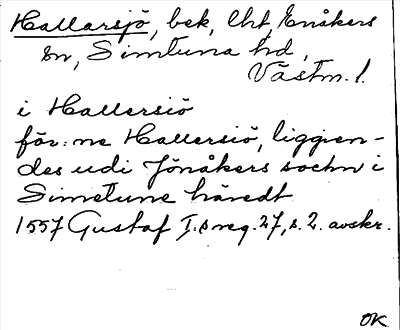 Hallarsjö, bek, Urt, Enåkers
sn, Simtuna hd,
Västm. l.
i Hallersiö
för:ne Hallersiö, liggien-
des udi Jönåkers sochn i
Simetune häredt
1557 Gustaf I:s reg. 27, s. 2. avskr.
OK